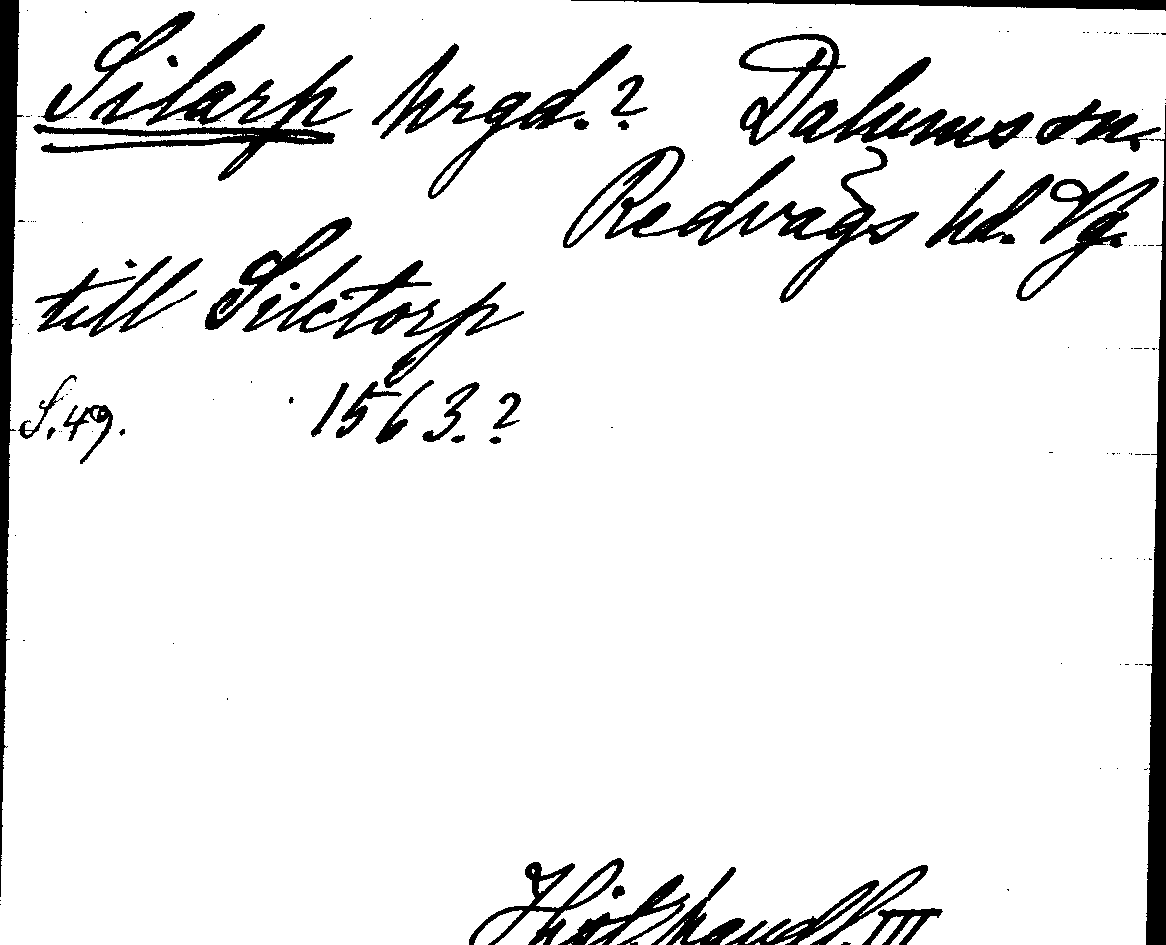 Silarp hrgd.? Dalums sn.
Redvägs hd. Vg.
till Siletorp
S.49. 1563.?
Hist. handl. III